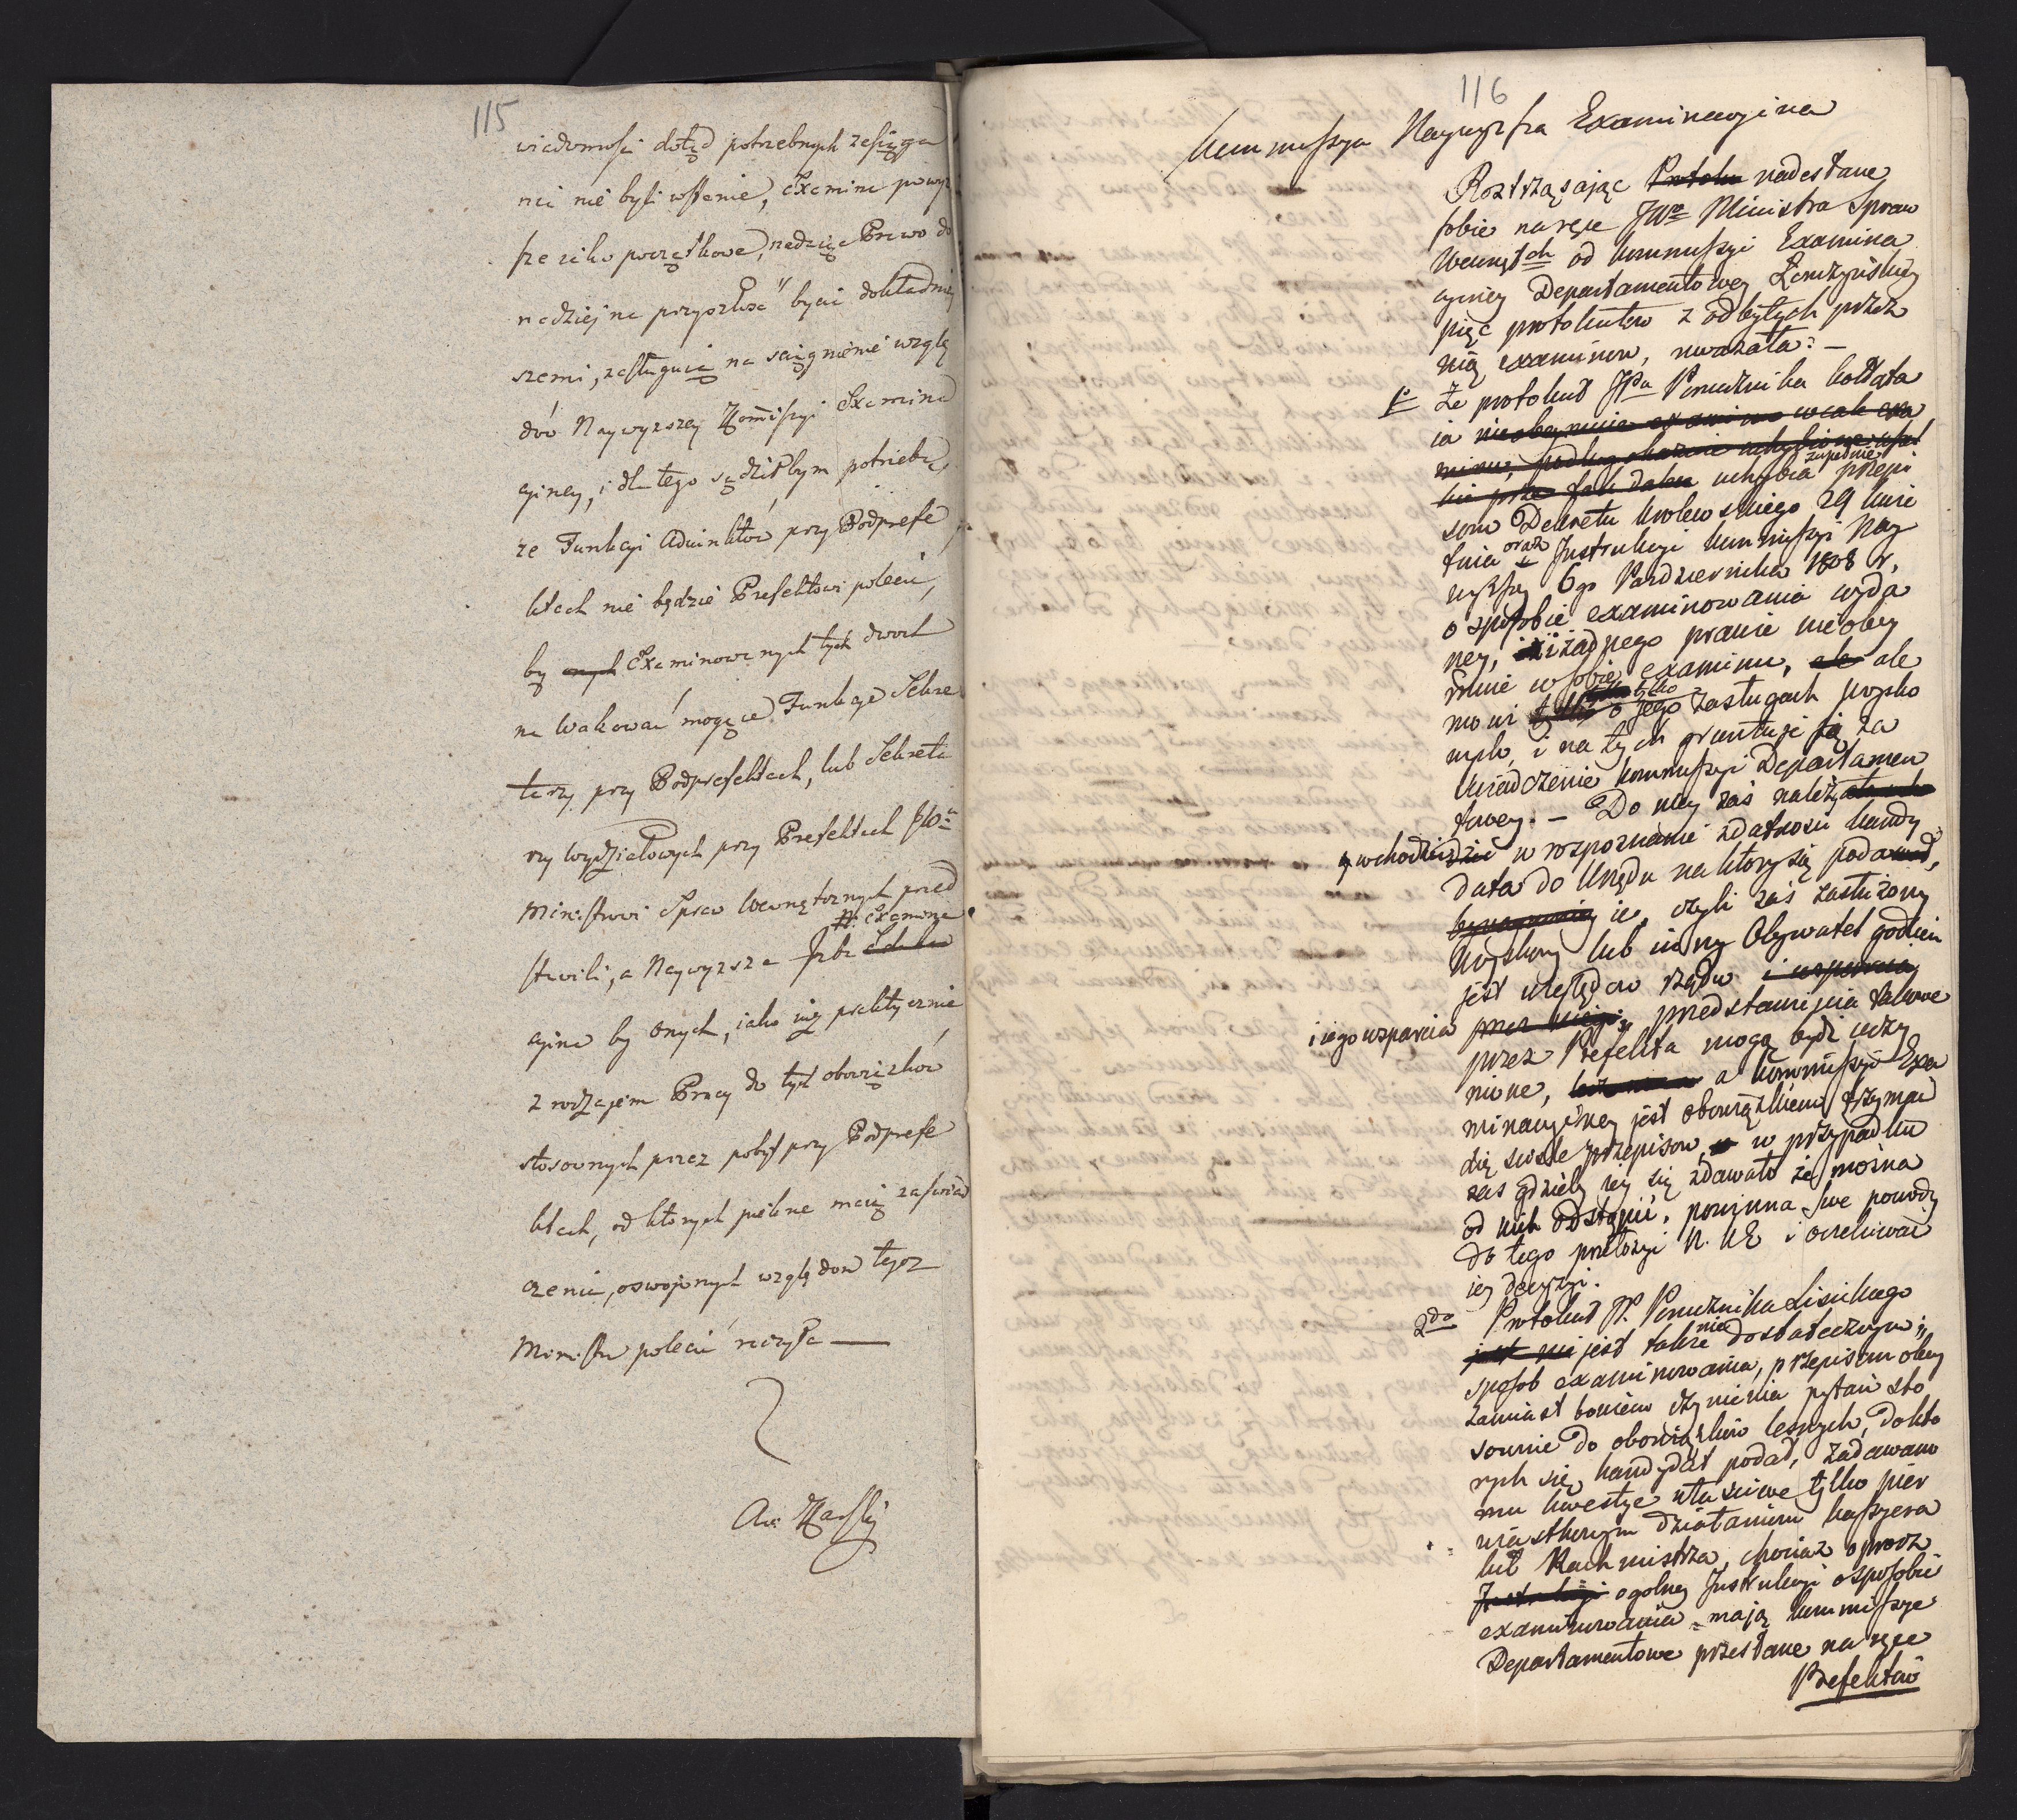 115
wiadomości dotąd potrzebnych zasięga
nia nie byli wstanie, Examina powyż
sze iako początkowe, nadziię Prawo do
nadziej na przyszłość bycia dokładniey
szemi, zasługuią na sciągnienie wzglę
dów Naywyzszey Kommissyi Examina
cyiney, i dla tego sądziłbym potrzebę,
ze Funkcyi Adiunktów przy Podprefe
ktach nie będzie Prefektowi polecić,
by Examinowanych tych dwoch
na wakować mogące Funkcye Sekre
tarzy przy Podprefektach, lub Sekreta
rzy wydziałowych przy Prefektach JWu
Ministrowi Spraw Wewnętrznych przed
stawili, a Naywyzsza Izba Examina
cyina by onych, iako iuż praktycznie
z rodzajem Pracy do tych obowiązków
stosownych przez pobyt przy Podprefe
ktach, od których pełne maią zaświad
czenia, oswojonych względom tegoz
Ministra polecić raczyła —
116
Kommissya Naywyzsza Examinacyina
Roztrząsając nadesłane
sobie na ręce JWo Ministra Spraw
Wewnętch od Kommissyi Examina
cyiney Departamentowey Łomżyńskiey
pięc protokułow z odbytych przez
nią examinow, uwazała: —
1o Ze protokuł JPa Porucznika Kołłąta
ia nieobeymuie examinu wcale exa
uchybia zupełnie przepi
som Dekretu Krolewskiego 29 Kwie
tnia oraz Instrukcyi Kommissyi Nay
wyższey 6go Pazdziernika 1808 r.
o sposobie examinowania wyda
ney, i żadnego prawie nieobey
muie w sobie examinu, ale
mowi tylko o jego zasługach woysko
wych, i na tych gruntuje się za
świadczenie kommissyi Departamen
towey. — Do niey zaś należy
wchodzić w rozpoznanie zdatności kandy
data do Urzędu na który się podaie,
czyli zaś zasłużony
Woyskowy lub inny Obywatel godzien
jest względow rządu
i iego wsparcia przedstawienia takowe
przez Prefekta mogą bydź uczy
nione, a kommissyi Exa
minacyiney jest obowiązkiem trzymać
się ściśle przepisow, w przypadku
zas gdzieby iey się zdawało że można
od nich odstąpić, powinna swe powody
do tego przełożyć K. NE i oczekiwać
iey decyzyi.
2do Protokuł JP. Porucznika Lisieckiego
jest także nie dostatecznym;
sposob examinowania, przepisom obcy
zamiast bowiem czynienia pytań sto
sownie do obowiązków leśnych, do kto
rych się kandydat podał, zadawano
mu kwestye właściwe tylko pier
wiastkowym działaniom kassyera
lub Rachmistrza, chociaż oprocz
ogolney Instrukcyi o sposobie
examinowania maią kommissye
Departamentowe przesłane na ręce
Prefektów